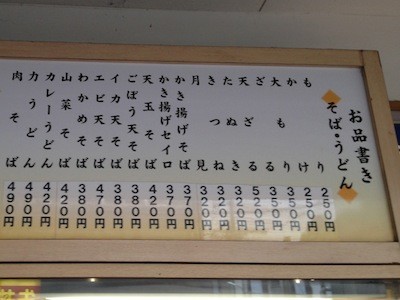 お品書き
そば・うどん
もり 250円
かけ 250円
大もり 350円
ざる 350円
天ざる 520円
たぬき 320円
きつね 320円
月見 320円
かき揚げそば 370円
かき揚げセイロ 370円
天玉そば 420円
ごぼう天そば 380円
イカ天そば 380円
エビ天そば 470円
わかめそば 380円
山菜そば 380円
カレーうどん 420円
力うどん 490円
肉そば 490円